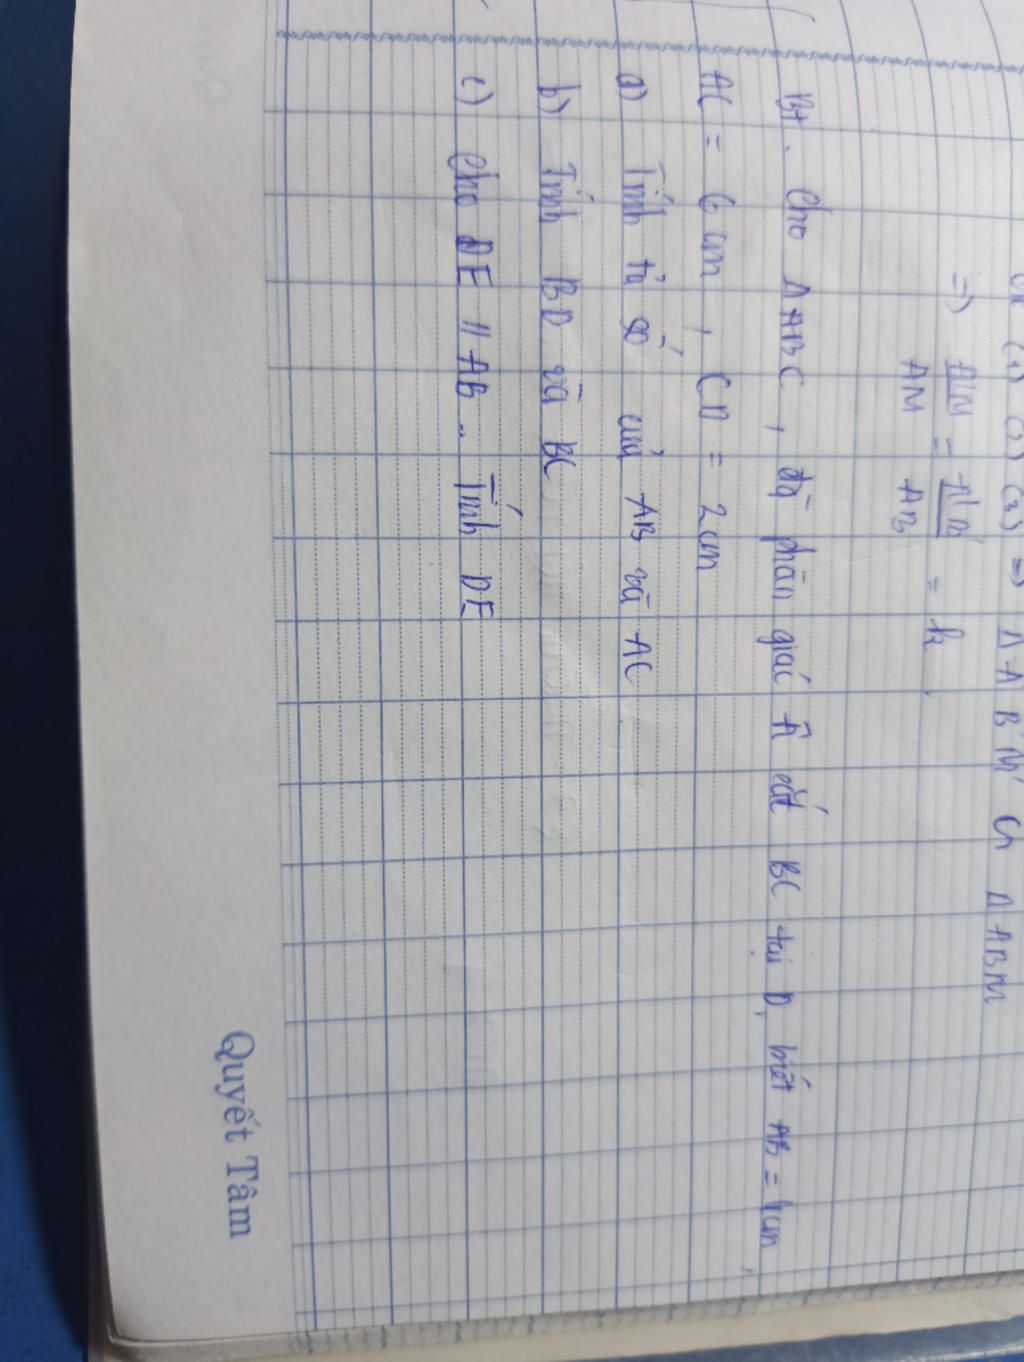 (1) (2) (3) => Δ A'B'M' ᔕ Δ ABM
=> A'M'/AM = A'B'/AB = k.
Bt. Cho Δ ABC, đg phân giác A cắt BC tại D, biết AB = 4cm,
AC = 6 cm, CD = 2cm
a) Tính tỉ số của AB và AC
b) Tính BD và BC
c) Cho DE // AB. Tính DE
Quyết Tâm